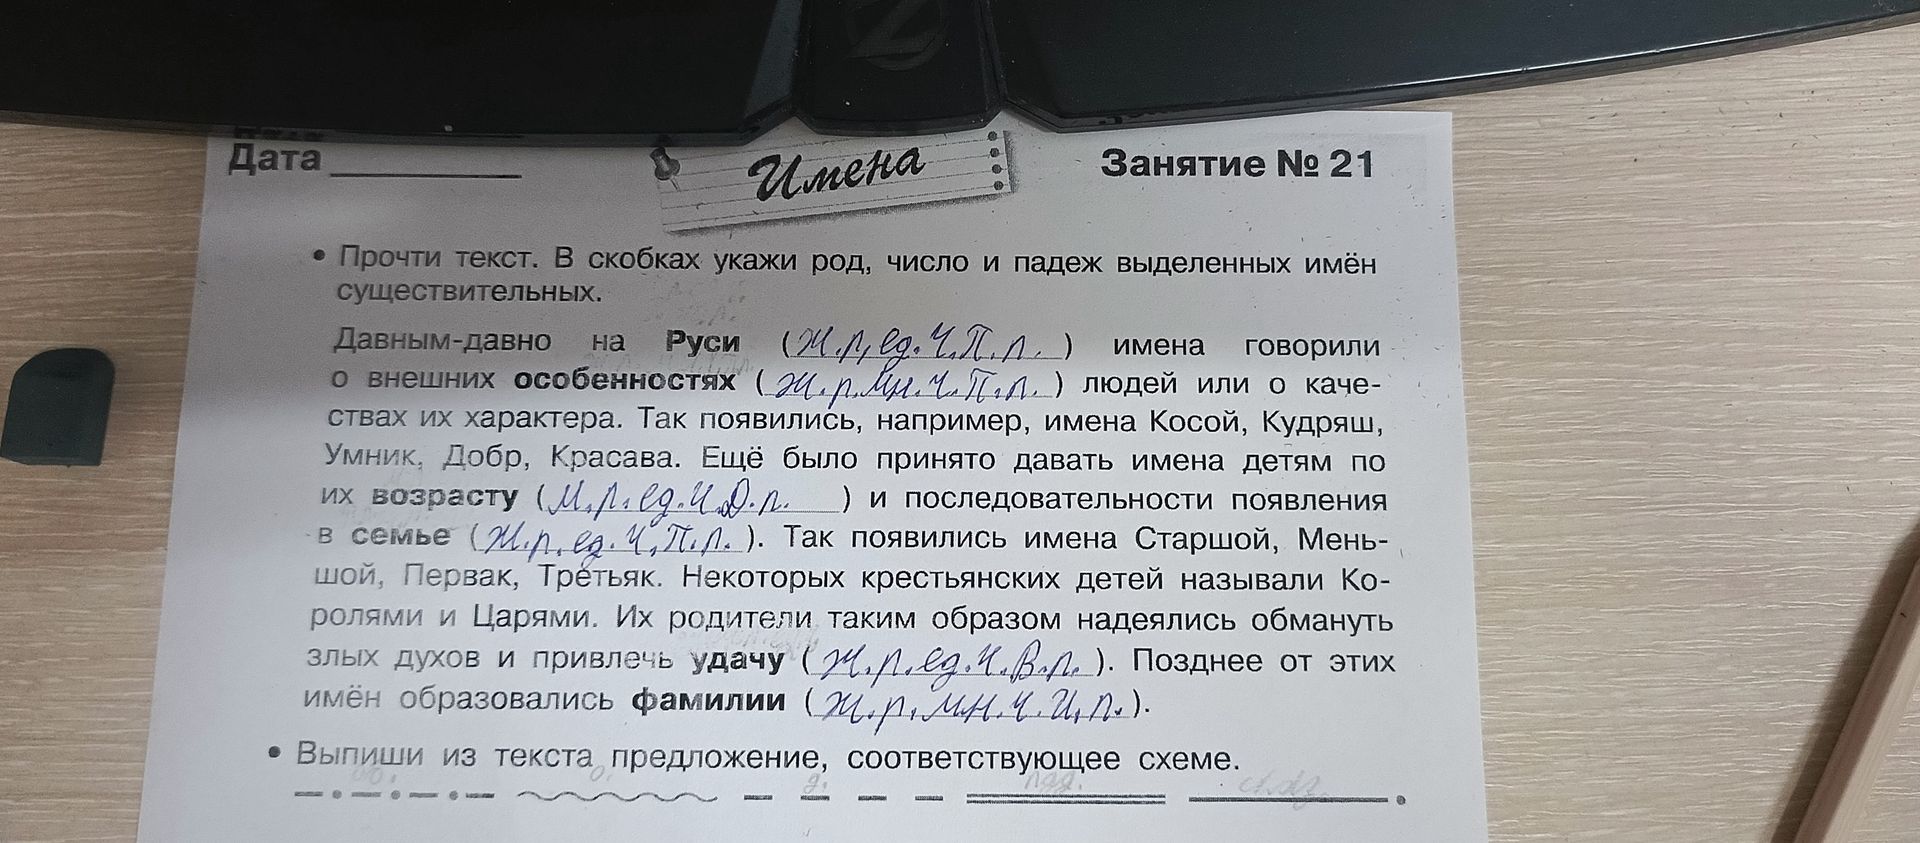 Дата
Имена
Занятие № 21
• Прочти текст. В скобках укажи род, число и падеж выделенных имён
существительных.
Давным-давно на Руси (Ж.р, ед.Ч.П.п.) имена говорили
о внешних особенностях (Ж.р.Мн.Ч.П.п.) людей или о каче-
ствах их характера. Так появились, например, имена Косой, Кудряш,
Умник, Добр, Красава. Ещё было принято давать имена детям по
их возрасту (М.р.ед.Ч.Д.п.) и последовательности появления
в семье (Ж.р.ед.Ч.П.п.). Так появились имена Старшой, Мень-
шой, Первак, Третьяк. Некоторых крестьянских детей называли Ко-
ролями и Царями. Их родители таким образом надеялись обмануть
злых духов и привлечь удачу (Ж.р.ед.Ч.В.п.). Позднее от этих
имён образовались фамилии (Ж.р.мн.ч.И.п.).
• Выпиши из текста предложение, соответствующее схеме.